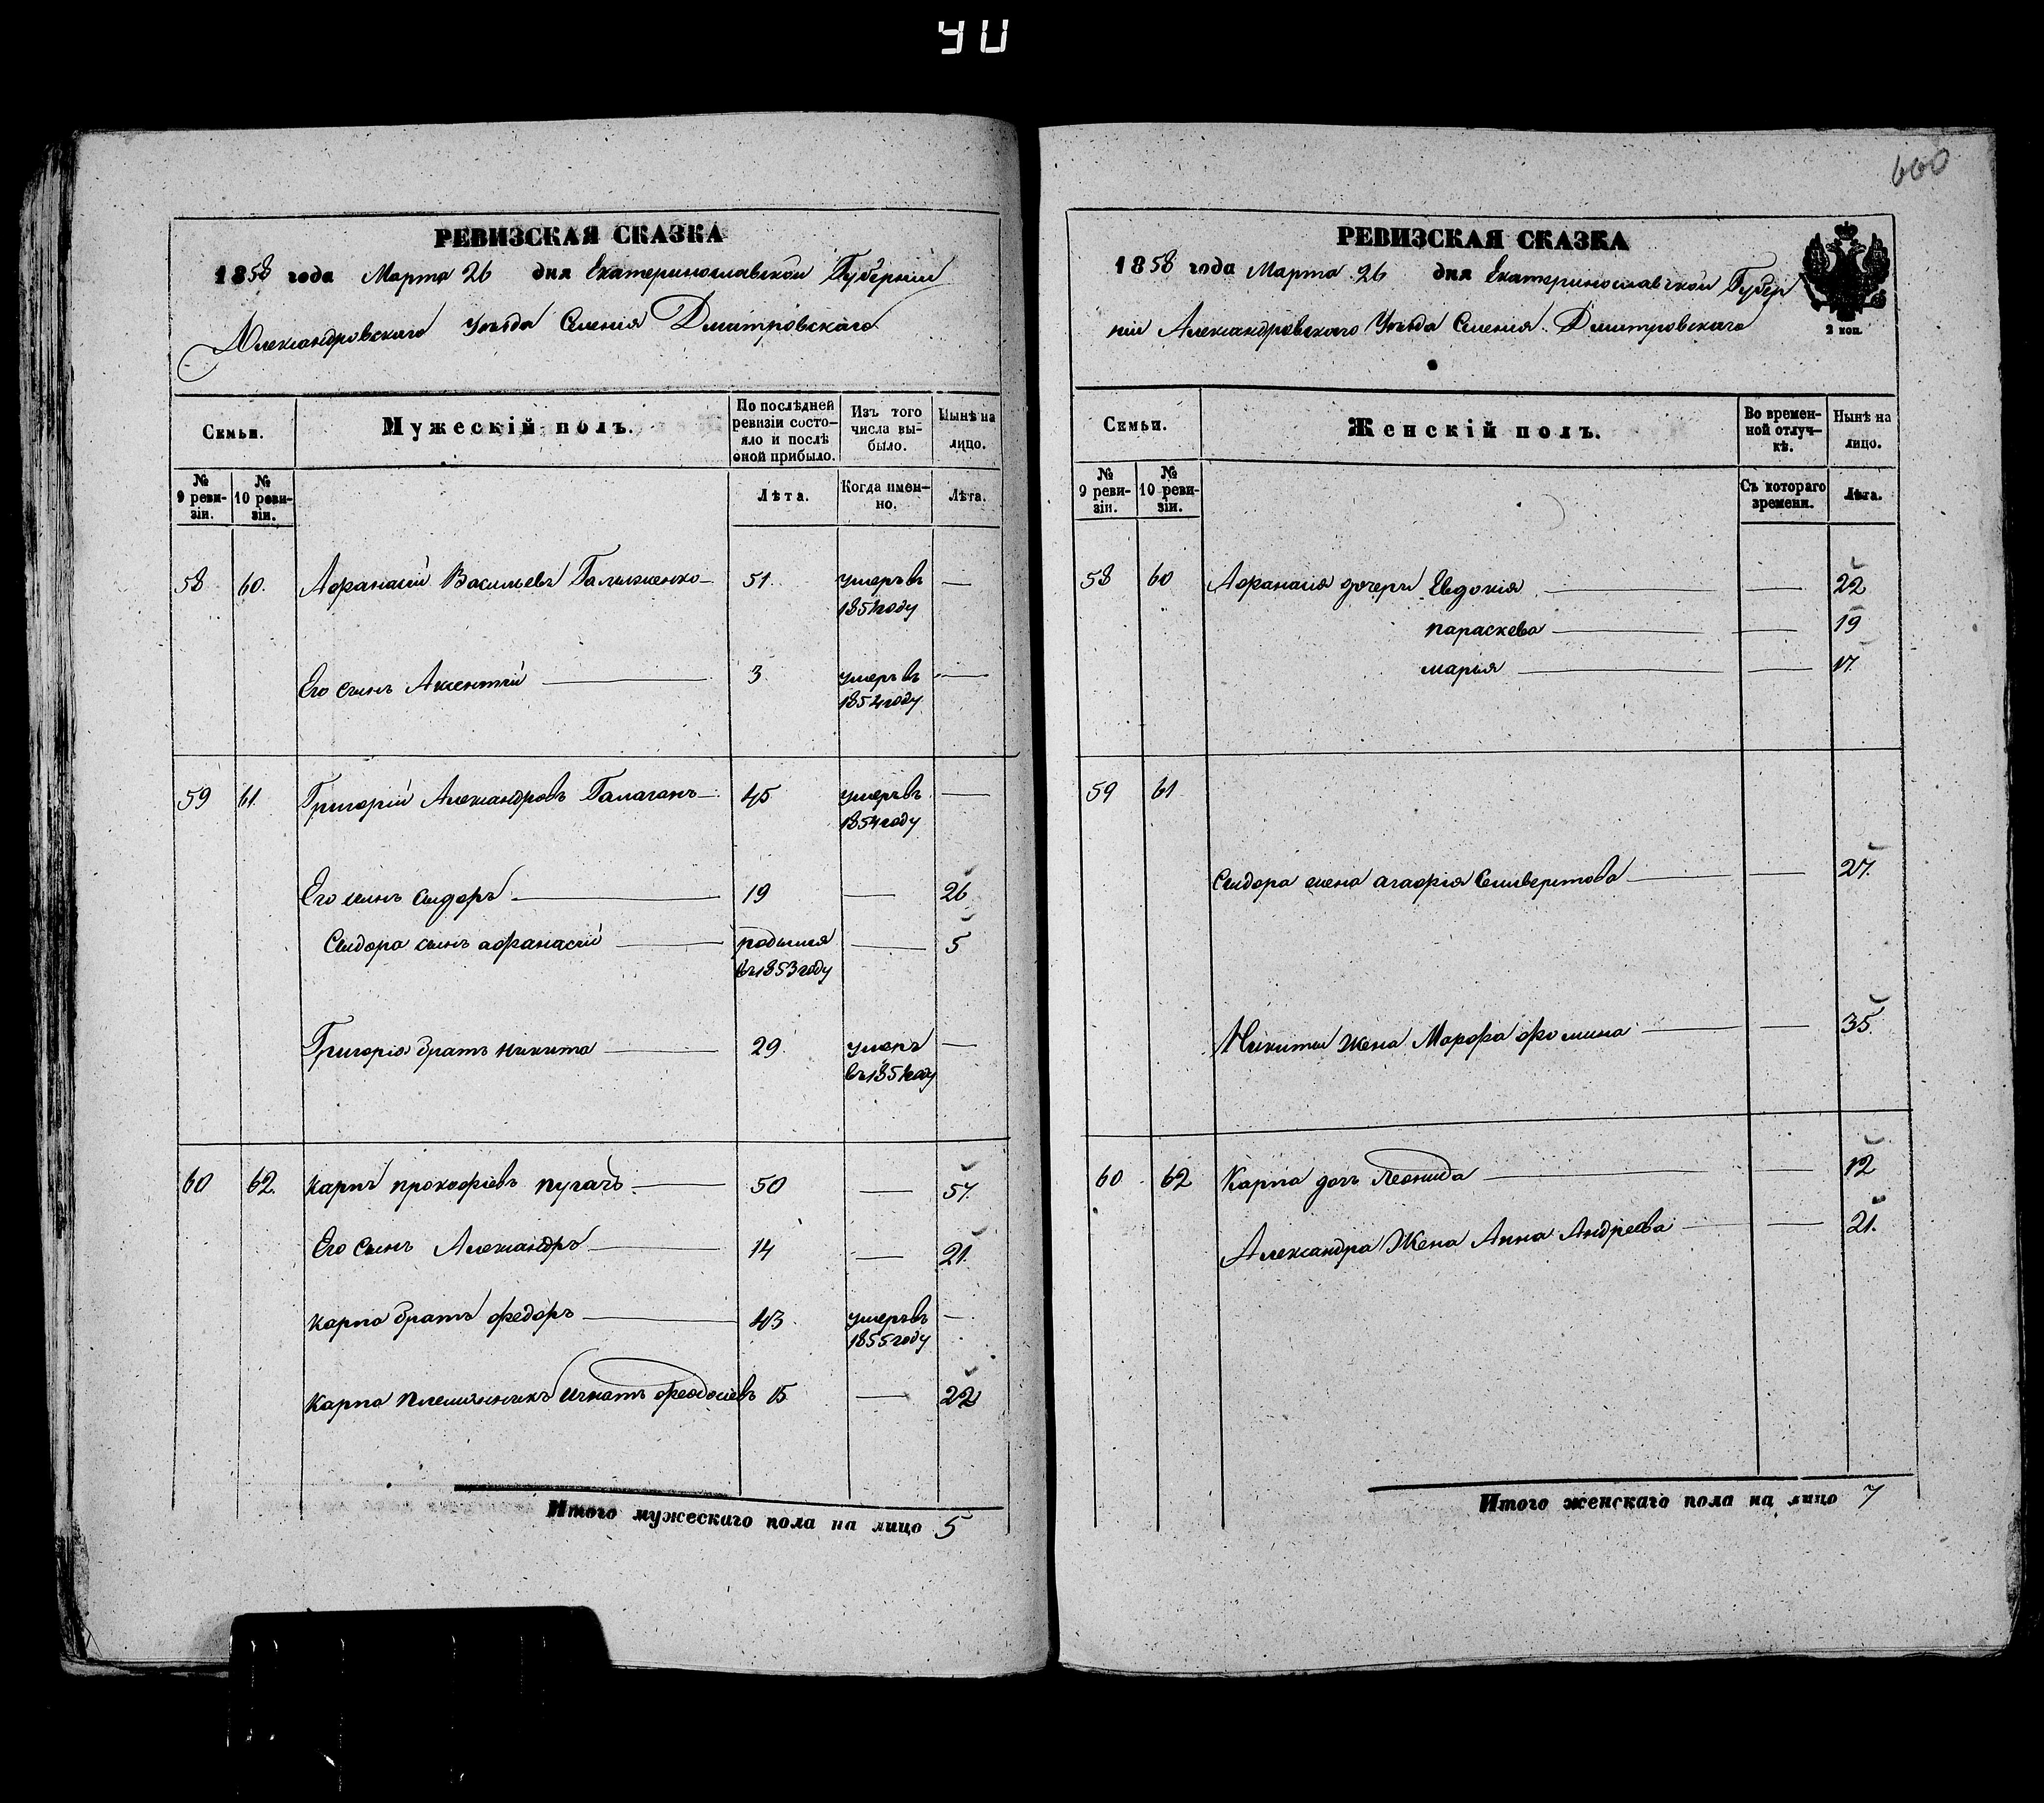 40
660
РЕВИЗСКАЯ СКАЗКА
1858 года Марта 26 дня Екатеринославской Губерніи
Александровскаго Уѣзда Селенія Дмитровскаго
Семьи.
Мужескій полъ.
По послѣдней ревизіи состо-
яло и послѣ оной прибыло.
Изъ того числа вы-
было.
Нынѣ на лицо.
№ 9 реви-
зіи.
№ 10 реви-
зіи.
Лѣта.
Когда имен-
но.
Лѣта.
58 60. Афанасій Васильевъ 51. умеръ въ —
185 году
Его сынъ Аксентій — 3 умеръ въ —
1854 году
59 61. Григорій Александровъ Галаганъ — 45 умеръ въ —
1854 году
Его сынъ Сидоръ — 19 — 26
Сидора сынъ афанасій — родился — 5
въ 1853 году
Григорія братъ никита — 29 умеръ —
въ 185 году
60 62. Карпъ прокофіевъ пугачъ. — 50 — 57.
Его Сынъ Александръ — 14 — 21.
Карпа братъ федоръ — 43 умеръ въ —
1855 году
Карпа племянникъ Игнатъ феодосіевъ 15 — 22
Итого мужескаго пола на лицо 5
РЕВИЗСКАЯ СКАЗКА
1858 года Марта 26 дня Екатеринославской Губер
ніи Александровскаго Уѣзда Селенія Дмитровскаго
2 коп.
Семьи.
Женскій полъ.
Во времен-
ной отлуч-
кѣ.
Нынѣ на лицо.
№ 9 реви-
зіи.
№ 10 реви-
зіи.
Съ котораго времени.
Лѣта.
58 60 Афанасія дочери Евдокія — — 22
параскева — — 19
марья — — 17.
59 61
Сидора жена агафія Селиверстова — — 27.
Никиты жена Марфа фомина — — 35.
60 62 Карпа дочь Леонида — — 12
Александра Жена Анна Андреева — — 21.
Итого женскаго пола на лицо 7